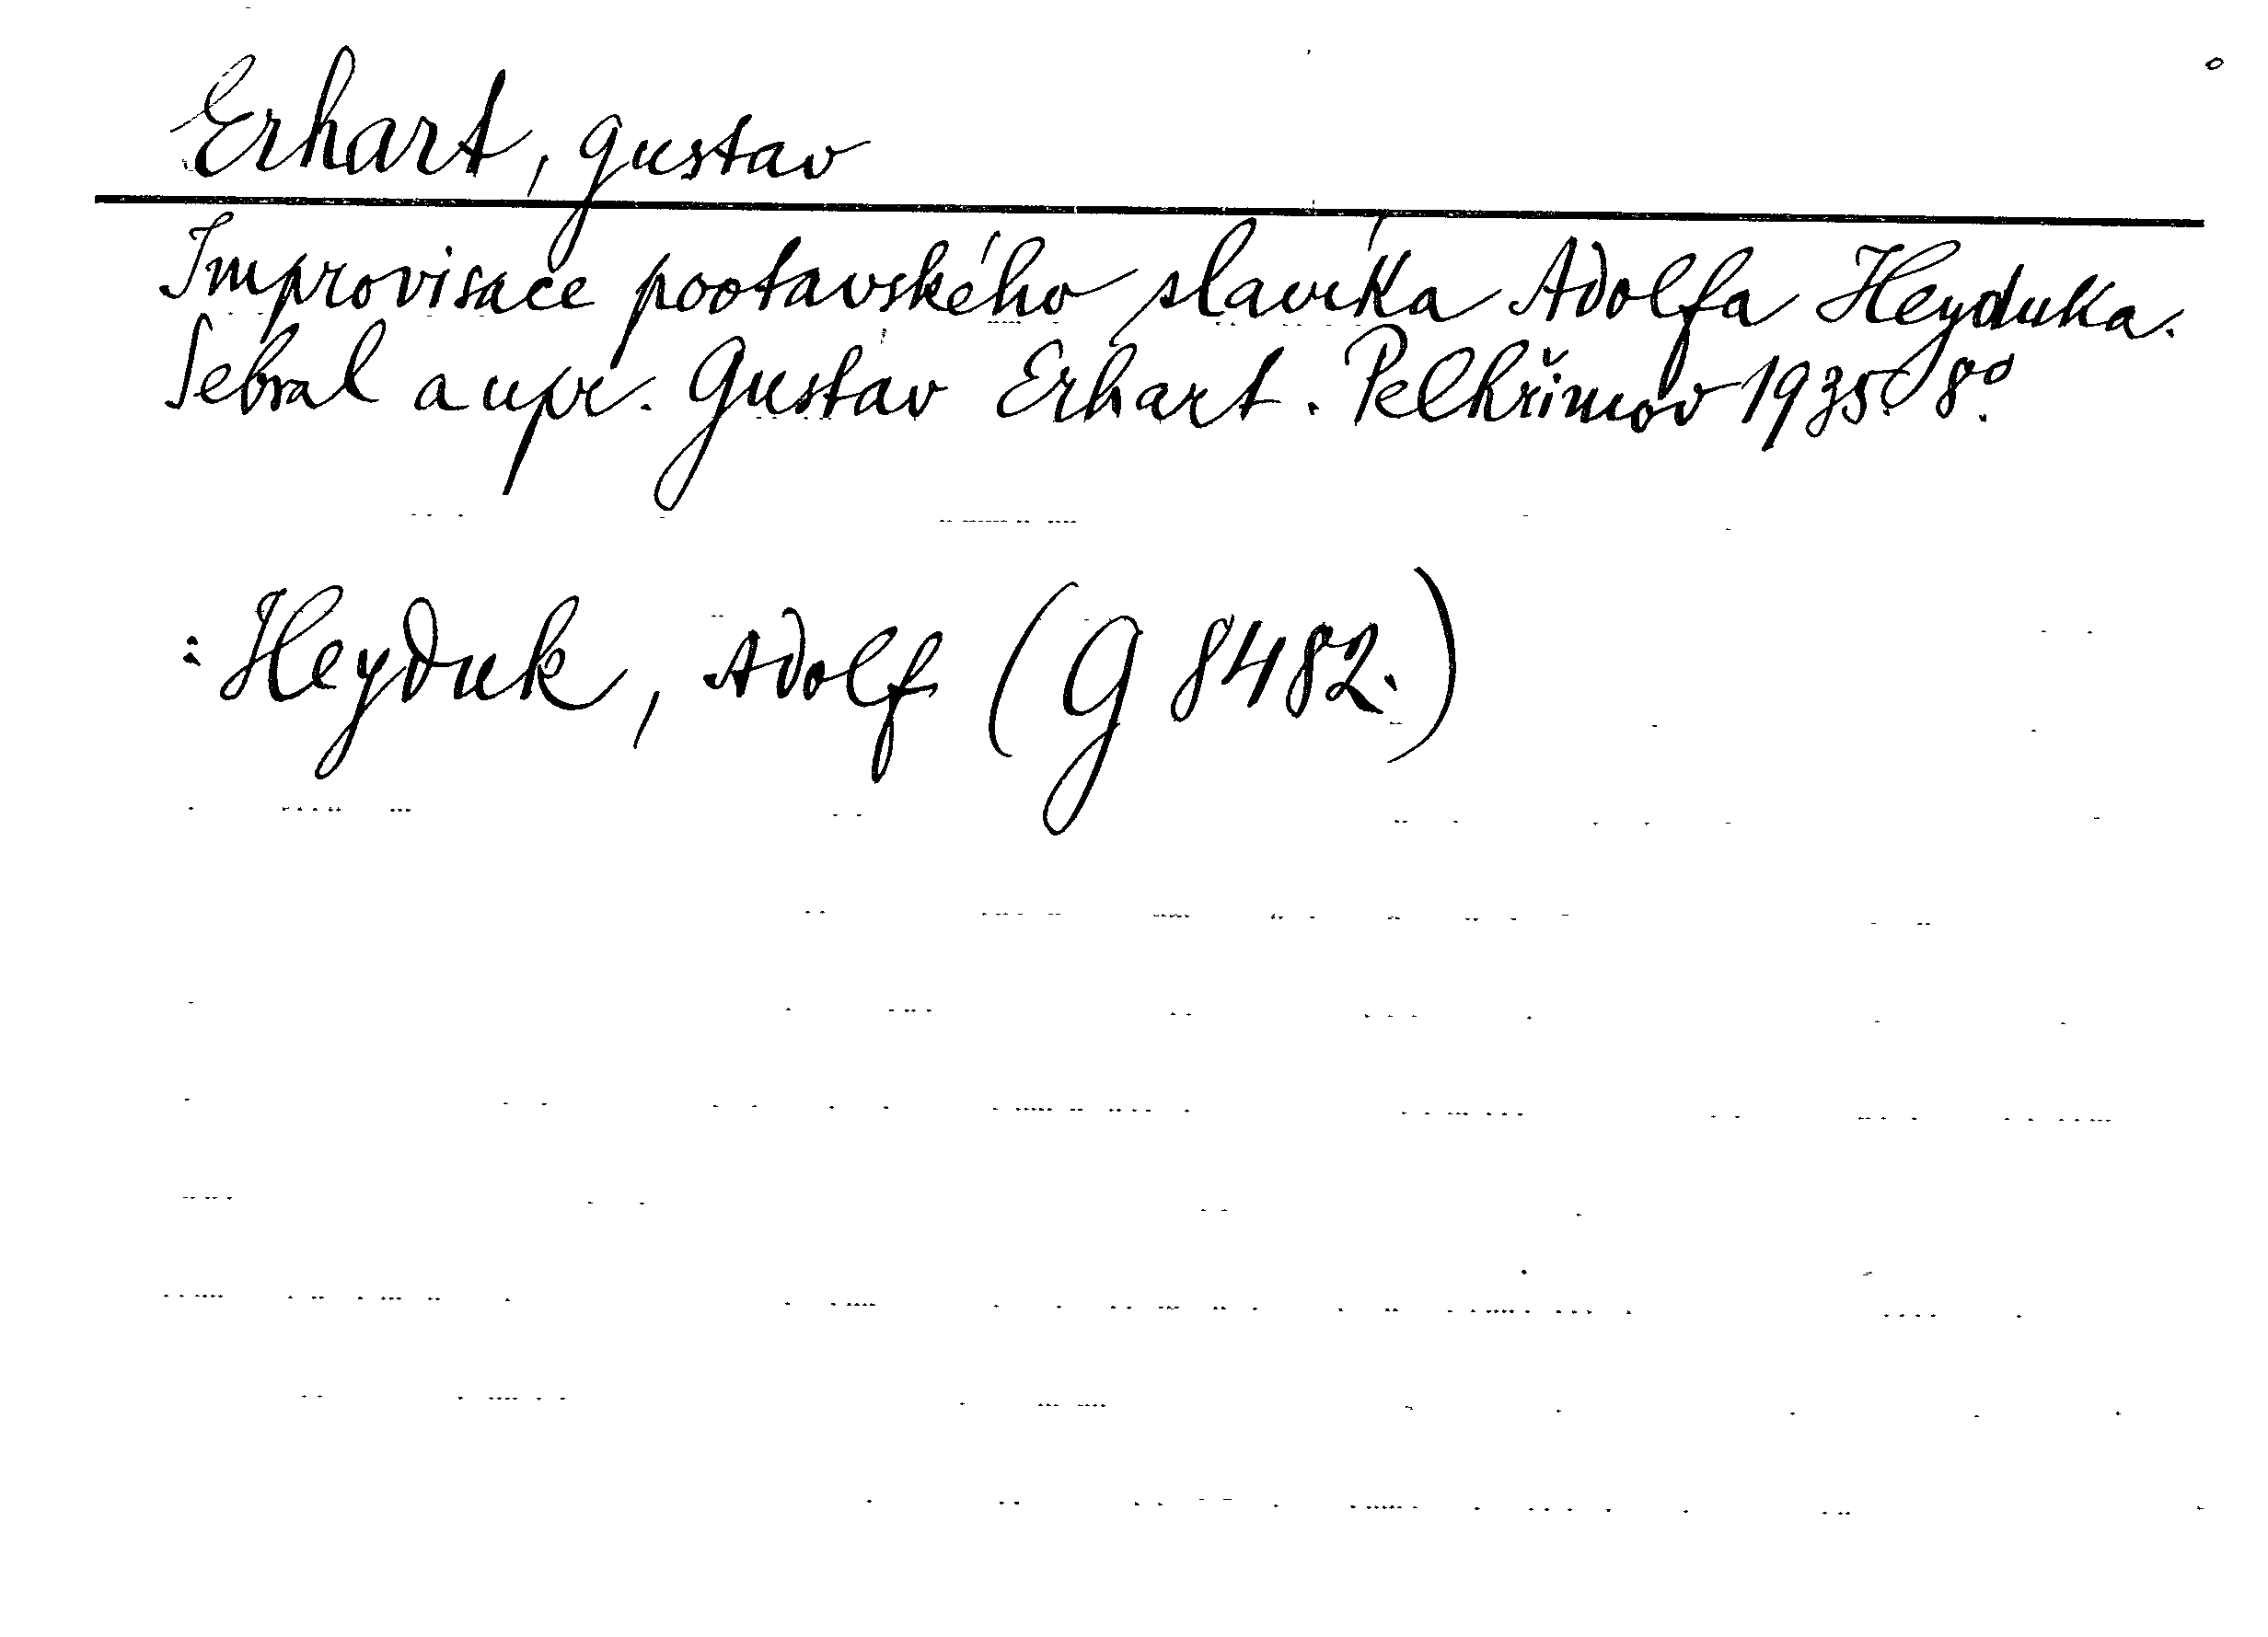 Erhart, Gustav
Improvisace pootavského slavíka Adolfa Heyduka.
Sebral a upr. Gustav Erhart. Pelhřimov 1935. 8°.
: Heyduk, Adolf (G 8482.)